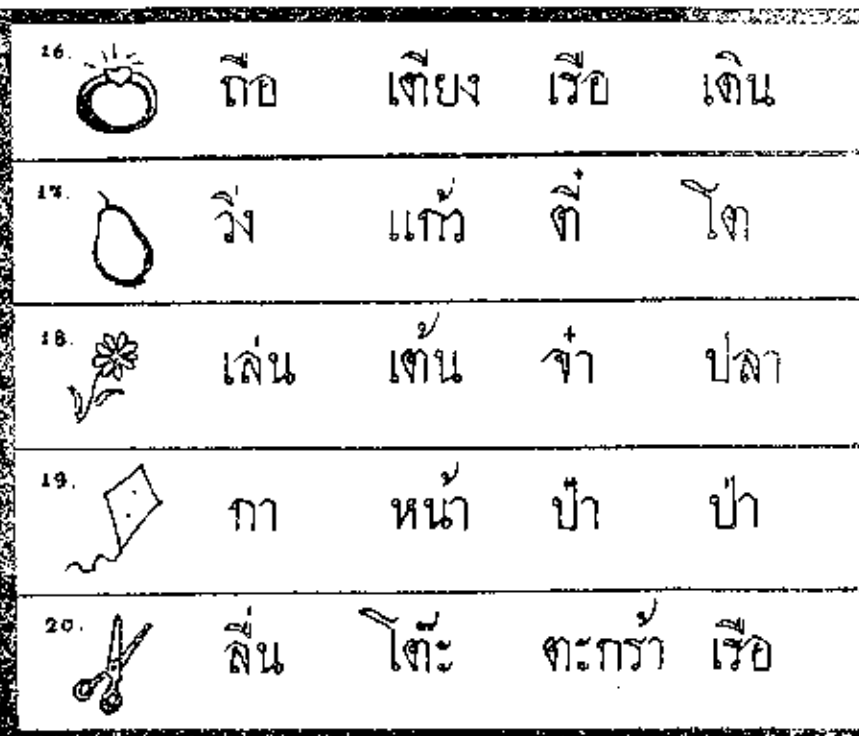 16. ถือ เตียง เรือ เดิน
17. วิ่ง แก้ว ตี๋ โต
18. เล่น เต้น จ๋า ปลา
19. กา หน้า ป๋า ป่า
20. ลื่น โต๊ะ ตะกร้า เรือ